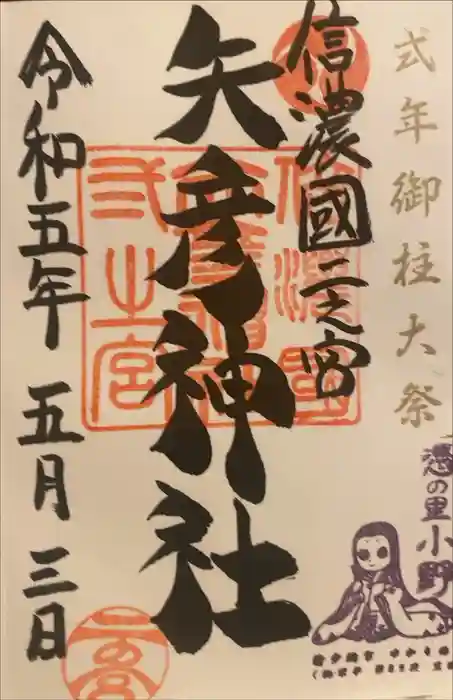 式年御柱大祭
信濃國二之宮
矢彦神社
令和五年 五月 三日
信濃國
二之宮
憑の里
小野